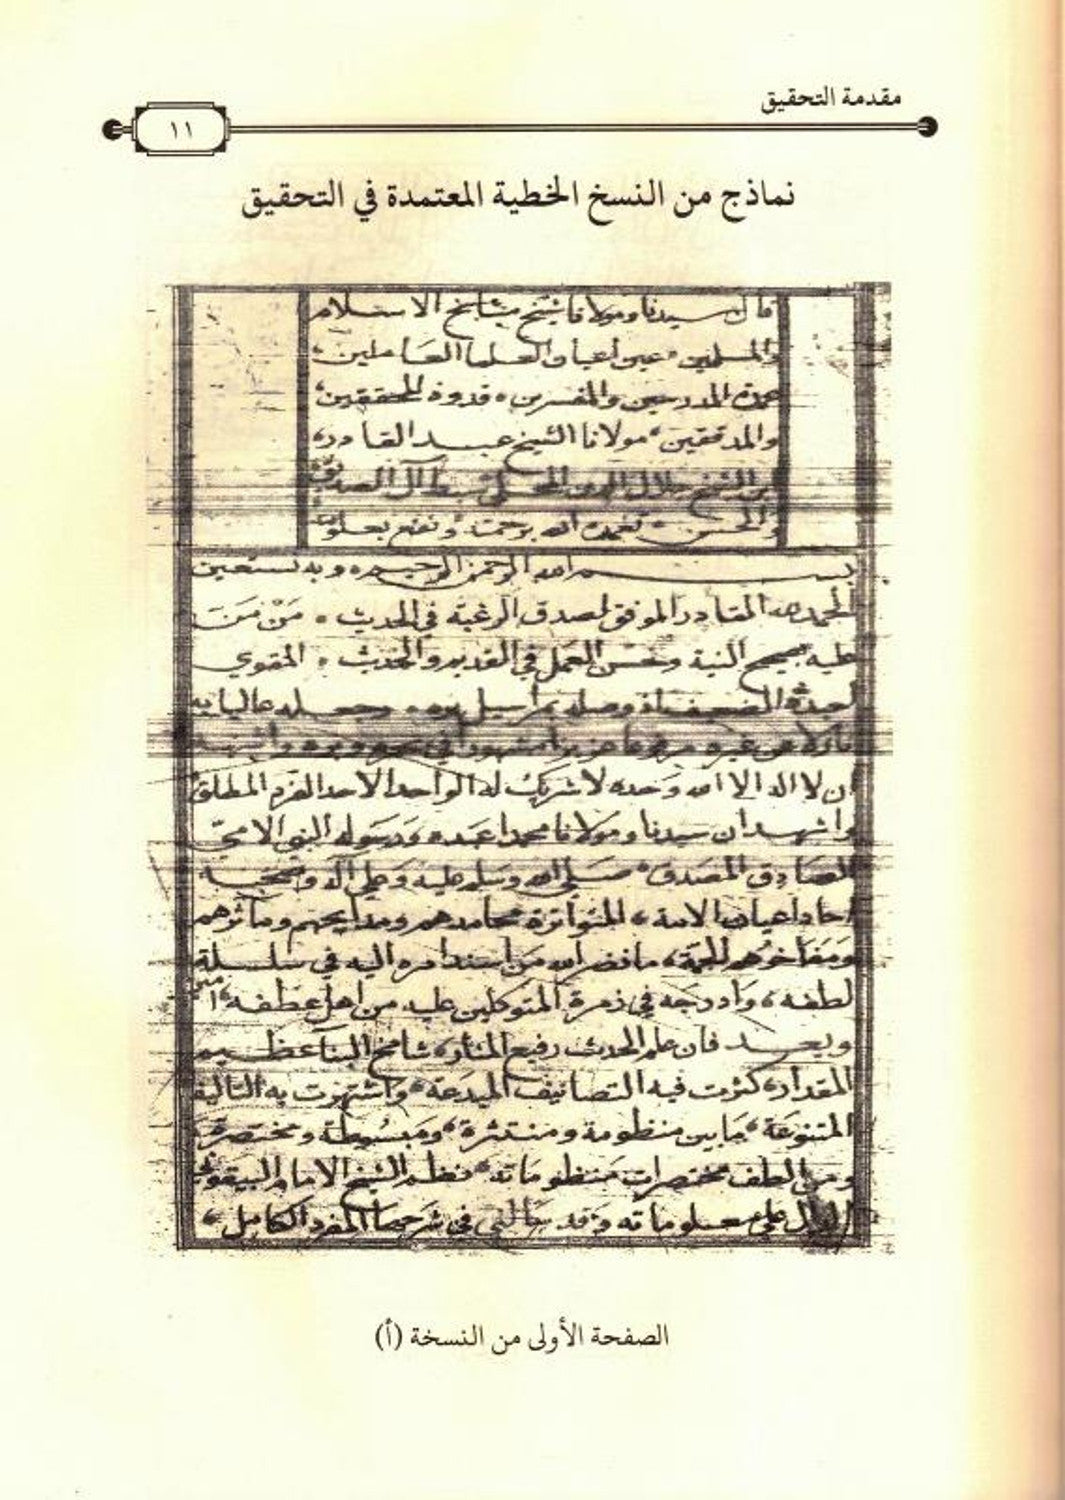 مقدمة التحقيق
١١
نماذج من النسخ الخطية المعتمدة في التحقيق
قال سيدنا ومولانا شيخ مشايخ الاسلام
والمسلمين عين اعيان العلما العاملين
عمدة المدرسين والمفسرين قدوة المحققين
والمدققين مولانا الشيخ عبد القادر
ابن الشيخ جلال الدين المحلي سبط آل الصديق
والحسن تغمده الله برحمته ونفع بعلومه
بسم الله الرحمن الرحيم وبه نستعين
الحمد لله القادر الموفق لصدق الرغبة في الحديث من من
عليه بصحيح النية وحسن العمل في القديم والحديث المقوي
وصله جعله عاليا به
واشهد
ان لا اله الا الله وحده لا شريك له الواحد الاحد الفرد المطلق
واشهد ان سيدنا ومولانا محمدا عبده ورسوله النبي الامي
الصادق المصدق صلى الله وسلم عليه وعلى آله وصحبه
احاد اعيان الامة المتواترة محامدهم ومدايحهم ومآثرهم
ومفاخرهم الجمة من اسند امره اليه في سلسلة
لطفه وادرجه في زمرة المتوكلين عليه من اهل عطفه امين
وبعد فان علم الحديث رفيع المنار شامخ البنا عظيم
المقدار كثرت فيه التصانيف المبدعة واشتهرت به التاليف
المتنوعة ما بين منظومة ومنتثرة ومبسوطة ومختصرة
ومن الطف مختصرات منظوماته نظم الشيخ الامام البيقوني
الدال على معلوماته وقد سالني في شرحها المفرد الكامل
الصفحة الأولى من النسخة (أ)